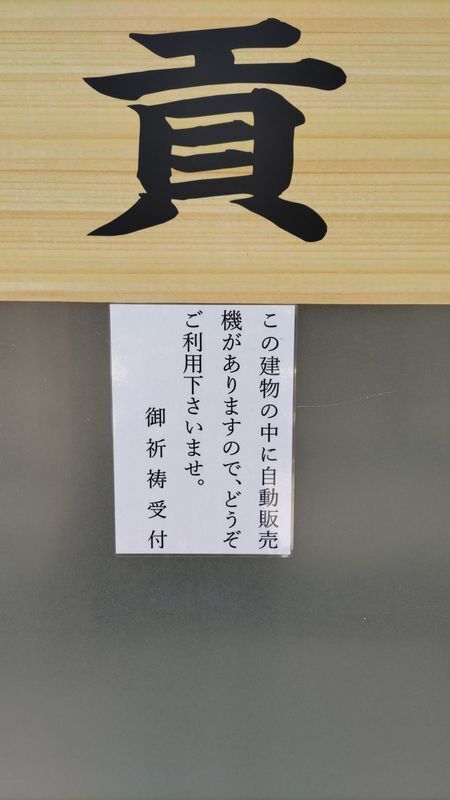 貢
この建物の中に自動販売
機がありますので、どうぞ
ご利用下さいませ。
御祈祷受付